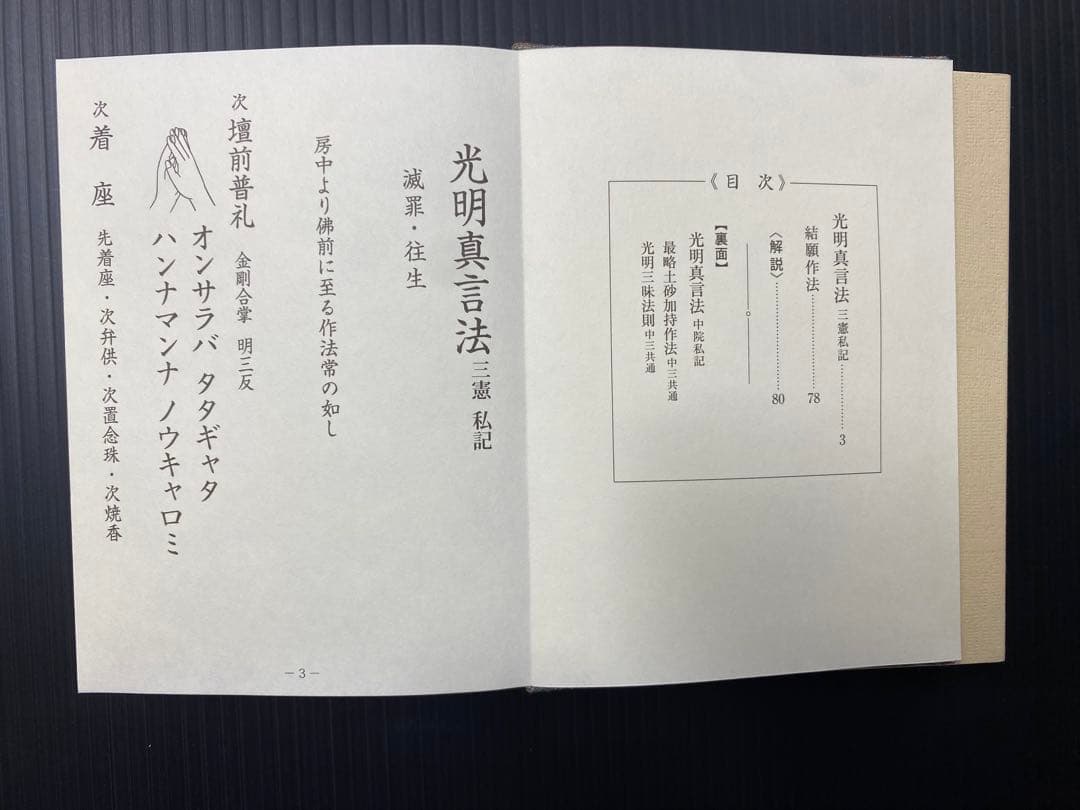 《目次》
光明真言法 三憲私記 3
結願作法 78
〈解説〉 80
【裏面】
光明真言法 中院私記
最略土砂加持作法 中三共通
光明三昧法則 中三共通
光明真言法 三憲 私記
滅罪・往生
房中より佛前に至る作法常の如し
次 壇前普礼 金剛合掌 明三反
オンサラバ タタギャタ
ハンナマンナ ノウキャロミ
次 着座 先着座・次弁供・次置念珠・次焼香
―3―